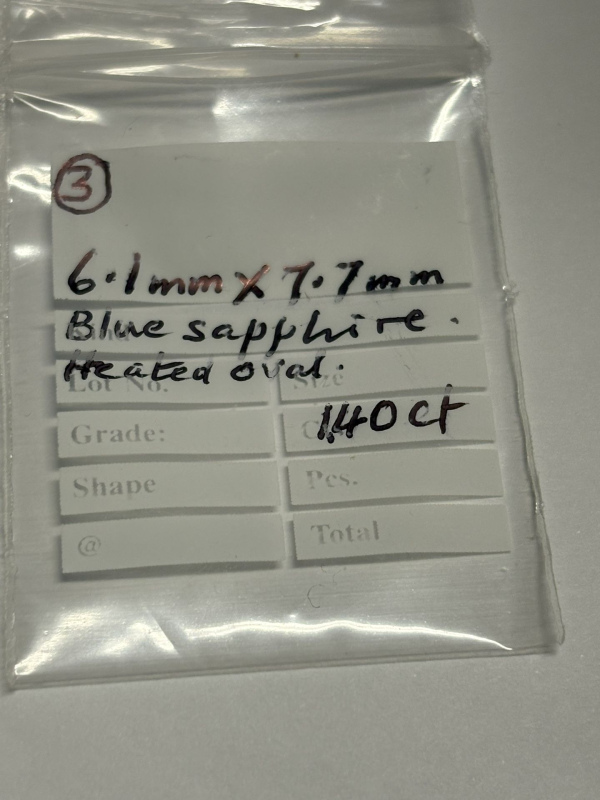 3
6.1mm x 7.7mm
Blue sapphire.
Heated oval.
Lot No. Size
Grade: 1.40 ct
Shape Pcs.
@ Total